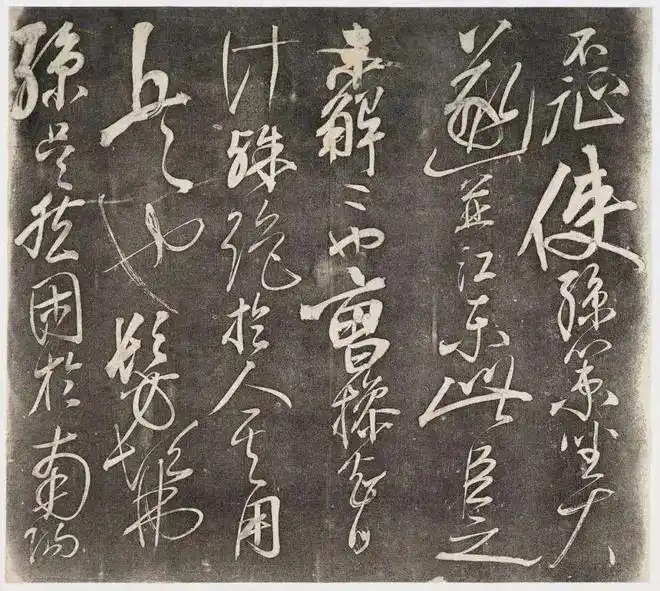 不征使孫策坐大
遂並江東此臣之
未解二也曹操智
計殊絕於人其用
兵也髣髴
孫吳然困於南陽